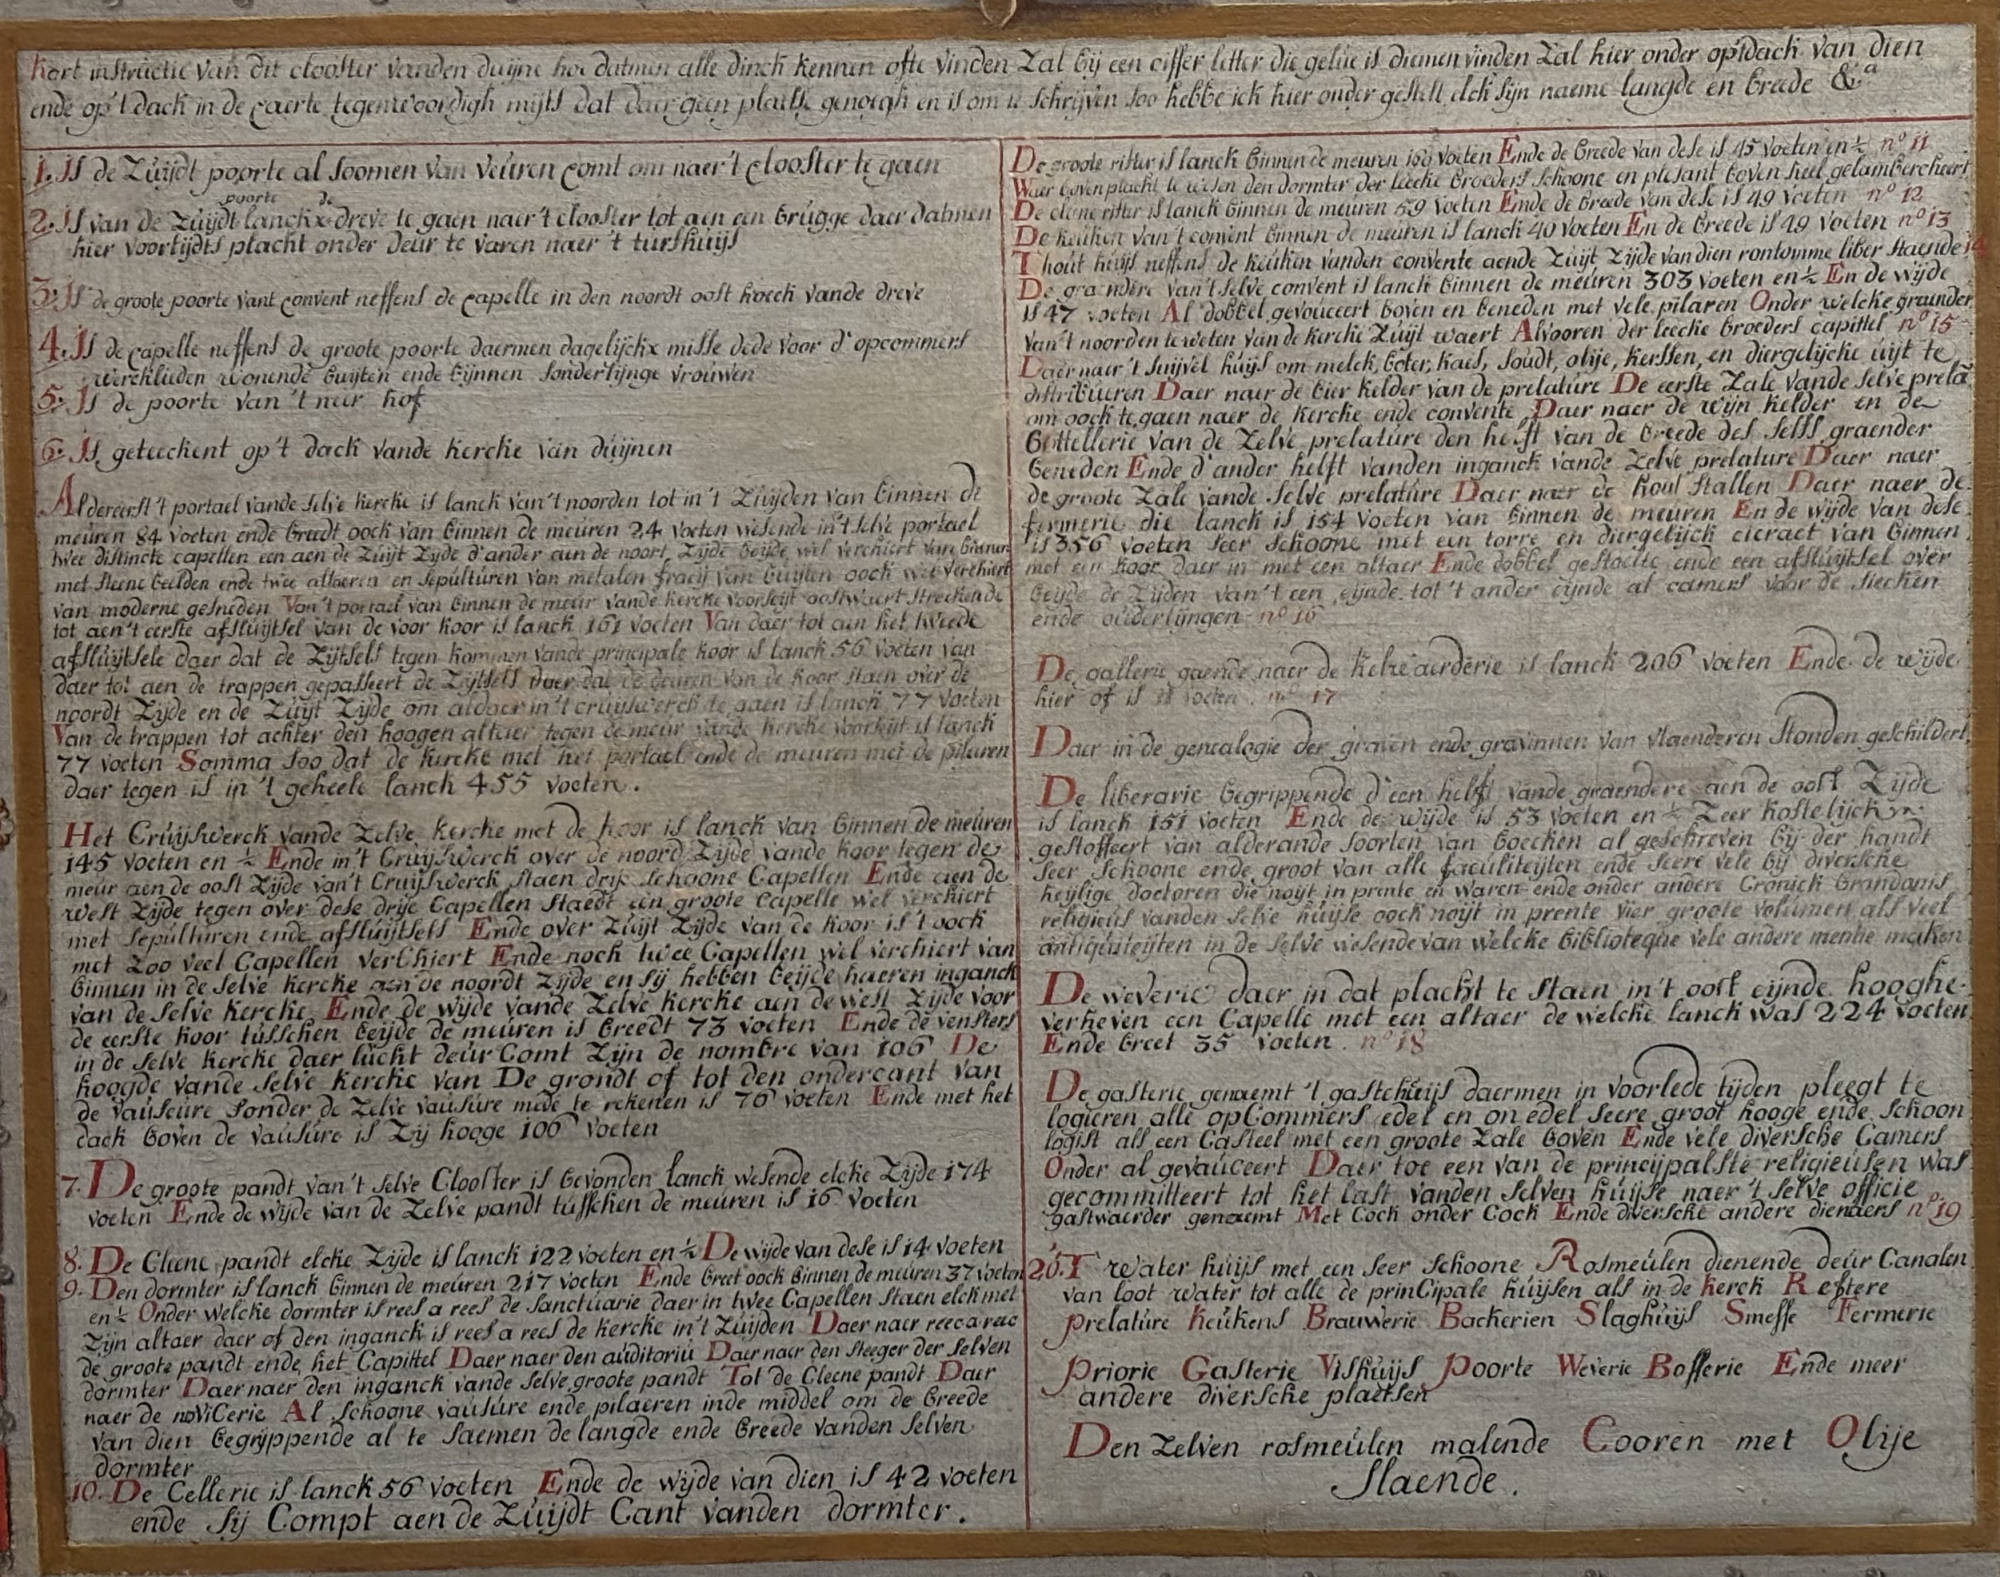 Kort instructie van dit clooster vanden duijne hoe datmen alle dinck kennen ofte vinden Zal bij een ciffer letter die gelüe is diemen vinden Zal hier onder op'tdack van dien
ende op't dack in de caerte tegenwoordigh mijts dat daer geen plaetse genoegh en is om te schrijven soo hebbe ick hier onder gestelt elck sijn naeme langde en breede &a
1. Is de Zuijdt poorte al soomen van veuren comt om naer't clooster te gaen
2. Is van de Zuijdt poorte lanckx de dreve te gaen naer't clooster tot aen een brügge daer datmen
hier voortijdts placht onder deur te varen naer 't turfhuijs
3. Is de groote poorte vant convent neffens de capelle in den noordt oost hoeck vande dreve
4. Is de capelle neffens de groote poorte daermen dagelijckx misse dede voor d'opcommers
wercklieden wonende buijten ende bijnnen sonderlijnge vrouwen
5. Is de poorte van 't neir hof
6. Is geteeckent op't dack vande kercke van duijnen
Aldereerst 't portael vande selve kercke is lanck van't noorden tot in't Zuijden van binnen de
meuren 84 voeten ende breedt oock van binnen de meuren 24 voeten wesende in't selve portael
twee distincte capellen een aen de Zuijt Zijde d'ander aen de noort Zijde beijde wel verchiert van binnen
met steene beelden ende twee altaeren en sepülturen van metalen fraeij van buijten oock wel verchiert
van moderne gesneden Van't portael van binnen de meur vande kercke voorseijt oostwaert streckende
tot aen't eerste afsluijtsel van de voor koor is lanck 161 voeten Van daer tot aen het tweede
afsluijtsele daer dat de Zijtsels tegen kommen vande principale koor is lanck 56 voeten van
daer tot aen de trappen gepasseert de Zijtsels daer dat de deuren van de koor staen over de
noordt Zijde en de Zuijt Zijde om aldaer in't cruijswerck te gaen is lanck 77 voeten
Van de trappen tot achter den hoogen altaer tegen de meur vande kercke voorseijt is lanck
77 voeten Somma soo dat de kercke met het portael ende de meuren met de pilaren
daer tegen is in 't geheele lanck 455 voeten.
Het Cruijswerck vande Zelve kercke met de koor is lanck van binnen de meuren
145 voeten en ½ Ende in't Cruijswerck over de noord Zijde vande koor tegen de
meur aen de oost Zijde van't Cruijswerck staen drije schoone Capellen Ende aen de
west Zijde tegen over dese drije Capellen staedt een groote Capelle wel verchiert
met sepulturen ende afsluijtsels Ende over Zuijt Zijde van de koor is't oock
met Zoo veel Capellen verchiert Ende noch twee Capellen wel verchiert van
binnen in de selve kercke aen de noordt Zijde en sij hebben beijde haeren inganck
van de selve kercke Ende de wijde vande Zelve kercke aen de west Zijde voor
de eerste koor tüsschen beijde de meuren is breedt 73 voeten Ende de vensters
in de selve kercke daer lücht deür Comt Zijn de nombre van 106 De
hoogde vande selve kercke van De grondt of tot den ondercant van
de vauseure sonder de Zelve vausure mede te rekenen is 76 voeten Ende met het
dack boven de vausure is Zij hooge 106 voeten
7. De groote pandt van't selve Clooster is bevonden lanck wesende elcke Zijde 174
voeten Ende de wijde van de Zelve pandt tusschen de meuren is 16 voeten
8. De Cleene pandt elcke Zijde is lanck 122 voeten en ½ De wijde van dese is 14 voeten
9. Den dormter is lanck binnen de meuren 217 voeten Ende breet oock binnen de meuren 37 voeten
en ½ Onder welcke dormter is rees a rees de Sanctuarie daer in twee Capellen staen elck met
Zijn altaer daer of den inganck is rees a rees de kercke in't Zuijden Daer naer rees a rees
de groote pandt ende het Capittel Daer naer den auditoriü Daer naer den steeger der selven
dormter Daer naer den inganck vande selve groote pandt Tot de Cleene pandt Daer
naer de noviCerie Al schoone vausure ende pilaeren inde middel om de breede
van dien begrijppende al te saemen de langde ende breede vanden selven
dormter
10. De Cellerie is lanck 56 voeten Ende de wijde van dien is 42 voeten
ende sij Compt aen de Zuijdt Cant vanden dormter.
De groote rifter is lanck binnen de meuren 169 voeten Ende de breede van dese is 45 voeten en ½ nº 11
Waer boven placht te wesen den dormter der leecke broeders schoone en plesant boven heel gelambercheert
De cleene rifter is lanck binnen de meuren 59 voeten Ende de breede van dese is 49 voeten nº 12
De keuken van't convent binnen de meuren is lanck 40 voeten En de breede is 49 voeten nº 13
Thout huijs neffens de keuken vanden convente aende Zuijt Zijde van dien rontomme liber staende 14
De graendere van't selve convent is lanck binnen de meuren 303 voeten en ½ En de wijde
is 47 voeten Al dobbel gevouceert boven en beneden met vele pilaren Onder welcke graender
van't noorden te weten van de kercke Zuijt waert Alvooren der leecke broeders capittel nº 15
Daer naer't suijvel huijs om melck, boter, kaes, soudt, olije, kerssen, en diergelijcke uijt te
distribüeren Daer naer de bier kelder van de prelature De eerste Zale vande selve prelā
om oock te gaen naer de kercke ende convente Daer naer de wijn kelder en de
bottellerie van de Zelve prelature den helft van de breede des selfs graender
beneden Ende d'ander helft vanden inganck vande Zelve prelature Daer naer
de groote Zale vande selve prelature Daer naer de koui stallen Daer naer de
fermerie die lanck is 154 voeten van binnen de meuren En de wijde van dese
is 356 voeten seer schoone met een torre en diergelijck cieraet van binnen
met een koor daer in met een altaer Ende dobbel gestoelte ende een afsluijtsel over
beijde de Zijden van't een eijnde tot't ander eijnde al camers voor de siecken
ende ouderlijngen nº 16
De gallerie gaende naer de kelxeaerderie is lanck 206 voeten Ende de wijde
hier of is 18 voeten. nº 17
Daer in de genealogie der graven ende gravinnen van vlaenderen stonden geschildert
De liberarie begrippende d'een helft vande graendere aen de oost Zijde
is lanck 151 voeten Ende de wijde is 53 voeten en ½ Zeer kostelijck
gestoffeert van alderande soorten van boecken al geschreven bij der handt
seer schoone ende groot van alle faculiteijten ende seere vele bij diversche
heijlige doctoren die noijt in prente en waren ende onder andere Cronick Brandonis
religieus vanden selve huijse oock noijt in prente vier groote volumen als veel
antiquiteijten in de selve wesende van welcke biblioteque vele andere mentie maken
De weverie daer in dat placht te staen in't oost eijnde hooghe
verheven een Capelle met een altaer de welcke lanck was 224 voeten
Ende breet 35 voeten. nº 18
De gasterie genaemt 't gastehuijs daermen in voorlede tijden pleegt te
logieren alle opCommers edel en on edel seere groot hooge ende schoon
logist als een Casteel met een groote Zale boven Ende vele diversche Camers
Onder al gevauceert Daer toe een van de principaelste religieusen was
gecommitteert tot het last vanden selven huijse naer't selve officie
gastwaerder genaemt Met Cock onder Cock Ende diversche andere dienaers nº 19
20. 'T water huijs met een seer schoone Rosmeulen dienende deur Canalen
van loot water tot alle de prinCipale huijsen als in de kerck Reftere
Prelature Keukens Brauwerie Backerien Slaghuijs Smesse Fermerie
Priorie Gasterie Vishuijs Poorte Weverie Bosserie Ende meer
andere diversche plaetsen
Den Zelven rosmeulen malende Cooren met Olije
staende.